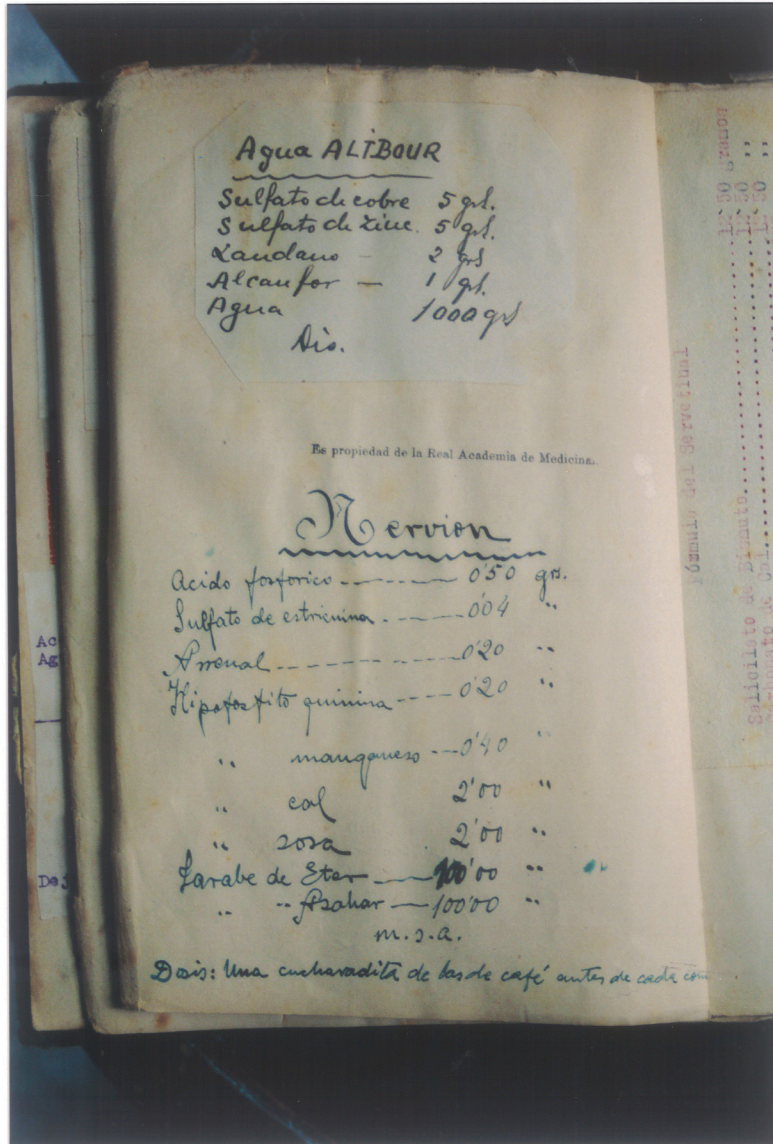 Agua ALIBOUR
Sulfato de cobre 5 grs.
Sulfato de Zinc. 5 grs.
Laudano - 2 grs
Alcanfor — 1 grs.
Agua 1000 grs
Dis.
Es propiedad de la Real Academia de Medicina.
Nervion
Acido fosforico ------- 0'50 grs.
Sulfato de estricnina ----- 0'04 "
Arrenal ------------ 0'20 "
Hipofosfito quinina ---- 0'20 "
" manganeso --- 0'40 "
" cal 2'00 "
" sosa 2'00 "
Jarabe de Eter ---- 100'00 "
" " Azahar — 100'00 "
m.s.a.
Dosis: Una cucharadita de las de café antes de cada com
Fórmula del Servetinal
Salicilato de Bismuto.................12'50 gramos
Carbonato de Cal
12'50 "
12'50 "
Ac
Ag